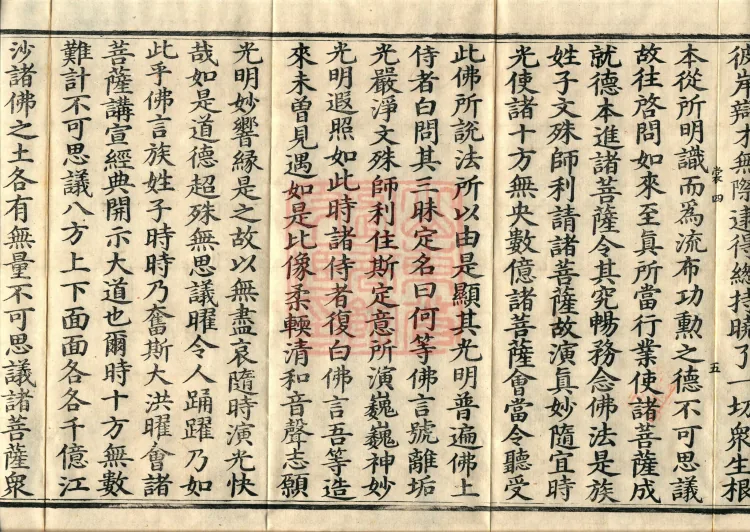 彼岸辯才無際逮得總持曉了一切衆生根
棠四
五
本從所明識而爲流布功勳之德不可思議
故往啓問如來至眞所當行業使諸菩薩成
就德本進諸菩薩令其究暢務念佛法是族
姓子文殊師利請諸菩薩故演眞妙隨宜時
光使諸十方無央數億諸菩薩會當令聽受
此佛所說法所以由是顯其光明普遍佛上
侍者白問其三昧定名曰何等佛言號離垢
光嚴淨文殊師利住斯定意所演巍巍神妙
光明遐照如此時諸侍者復白佛言吾等造
來未曽見遇如是比像柔輭清和音聲志願
光明妙響縁是之故以無盡哀隨時演光快
哉如是道德超殊無思議曜令人踊躍乃如
此乎佛言族姓子時時乃奮斯大洪曜會諸
菩薩講宣經典開示大道也爾時十方無數
難計不可思議八方上下面面各各千億江
沙諸佛之土各有無量不可思議諸菩薩衆